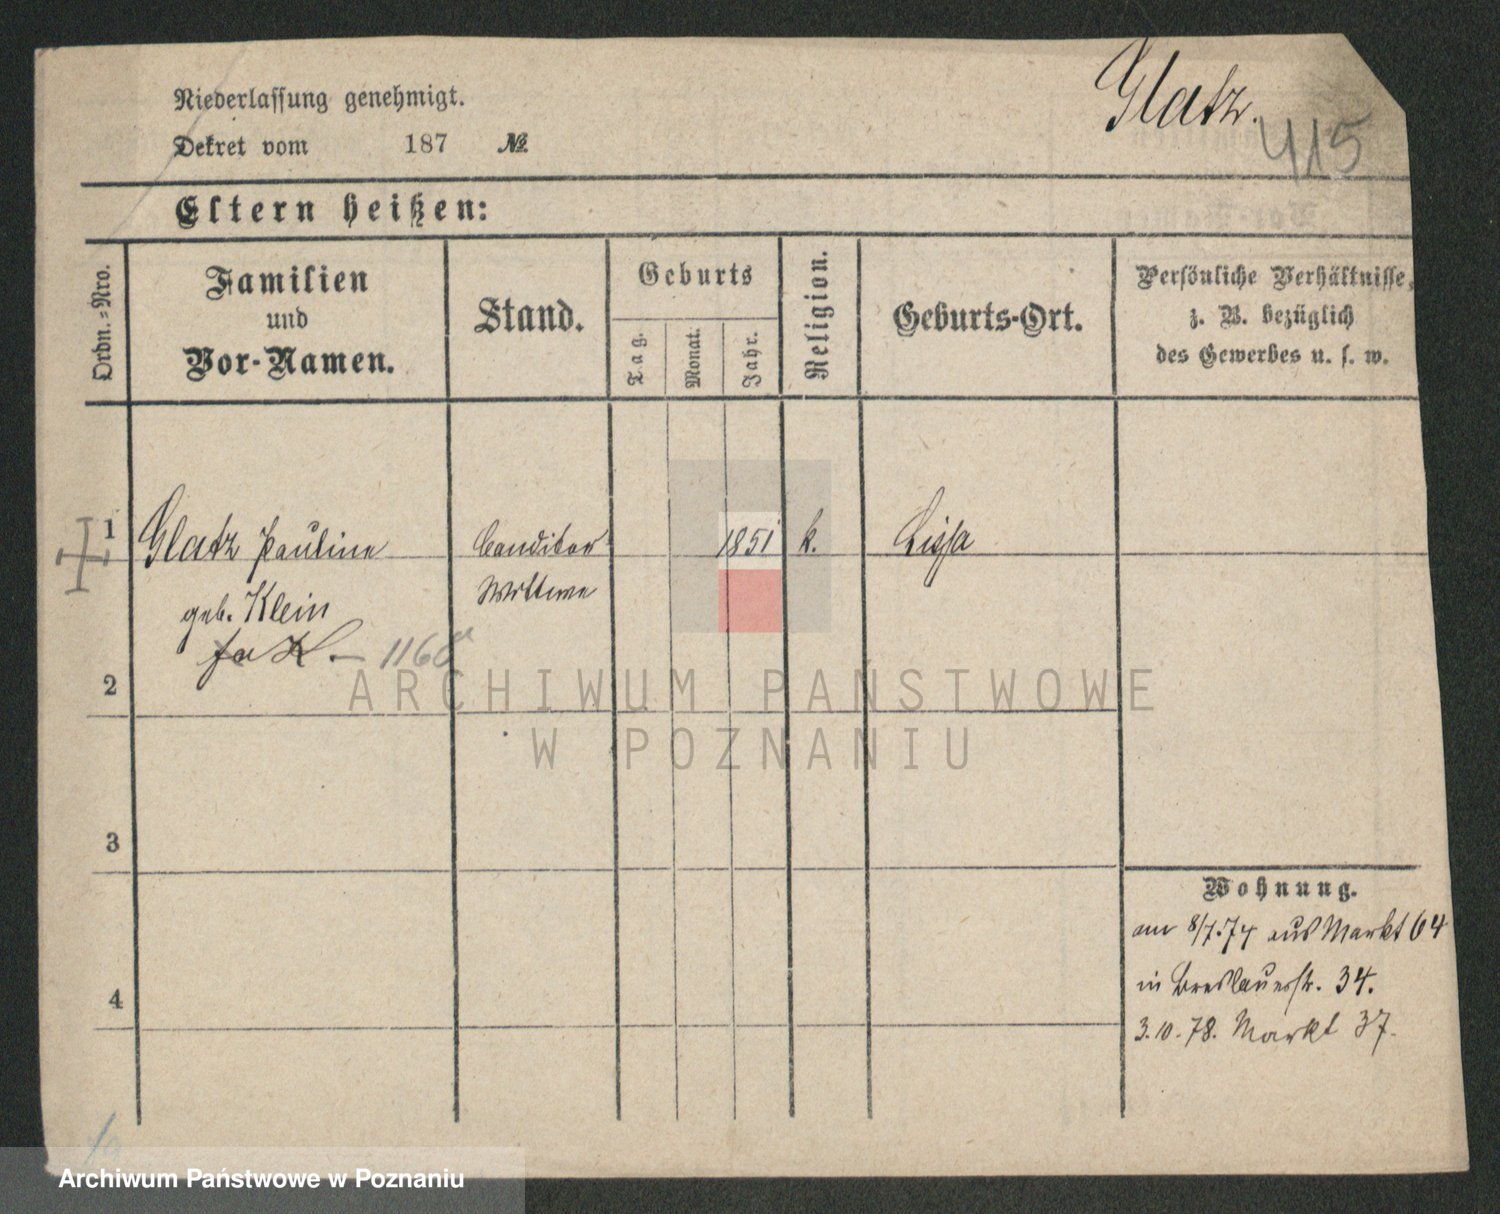 Glatz.
415
Niederlassung genehmigt.
Dekret vom 187 №
Eltern heißen:
Ordn.=Nro.
Familien
und
Vor-Namen.
Stand.
Geburts
Tag.
Monat.
Jahr.
Religion.
Geburts-Ort.
Persönliche Verhältnisse,
z. B. bezüglich
des Gewerbes u. s. w.
1 Glatz Pauline Conditor 1851 k. Lissa
geb. Klein Wittwe
1160
2
3
4
Wohnung.
am 8/7.74 aus Markt 64
in Breslauerstr. 34.
3.10.78. Markt 37.
ARCHIWUM PAŃSTWOWE
W POZNANIU
Archiwum Państwowe w Poznaniu